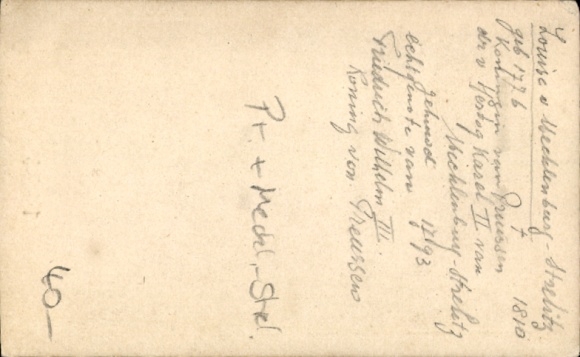 Louise v Mecklenburg-Strelitz
geb 1776 † 1810
Koningin van Pruissen
dr v Hertog Karel II van
Mecklenburg-Strelitz
gehuwd 1793
echtgenote van
Friedrich Wilhelm III.
Koning von Preussen
Pr. + Meckl.-Strel.
40—